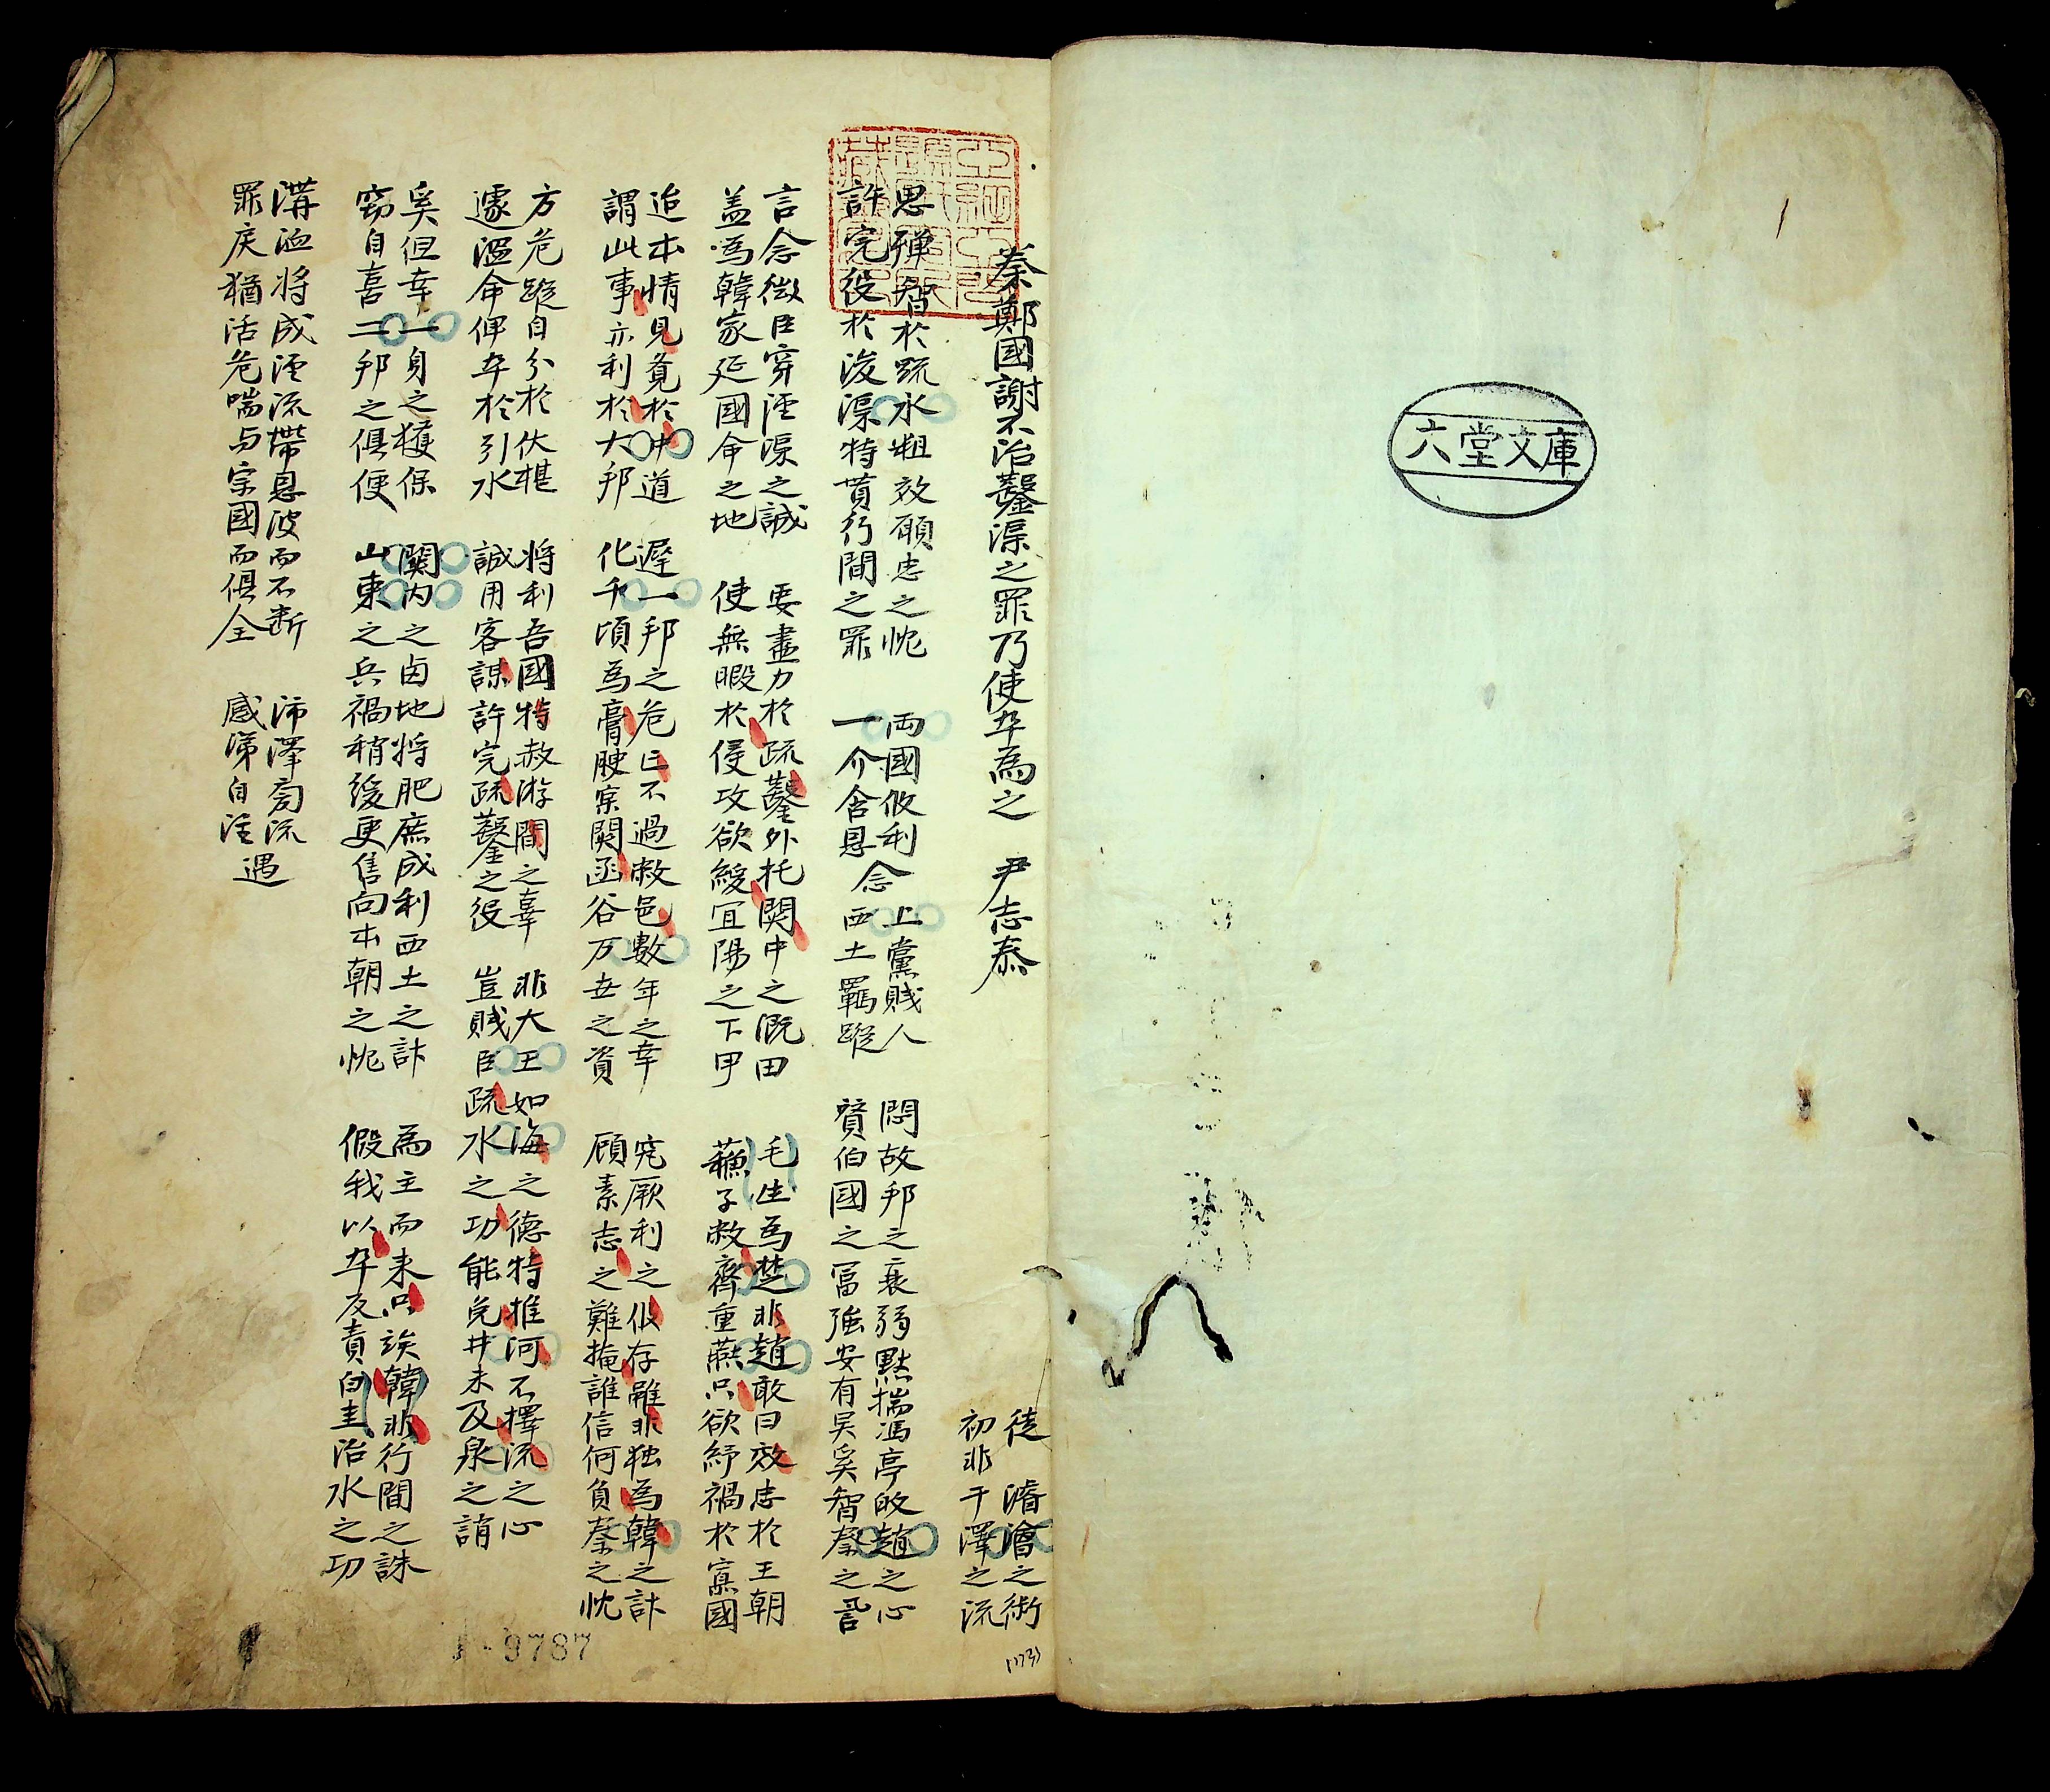 六堂文庫
秦鄭國謝不治鑿渠之罪乃使卒為之 尹志泰 徒濬澮之術
初非干澤之流
思殫智於疏水粗效願忠之忱 両國攸利 上黨賤人 悶故邦之衰弱默揣馮亭啟趙之心
許完役於浚渠特貰行間之罪 一介含恩 念西土羈蹤 賛伯國之冨強安有吴奚智蔡之
言念微臣穿涇渠之誠 要盡力於疏鑿外托関中之溉田 毛生為楚非趙敢曰效忠於王朝
盖為韓家延國命之地 使無暇於侵攻欲緩宜陽之下甲 蘓子敝齊重燕只欲紓禍於寡國
迨本情見覔於中道 遲一邦之危亡不過敝邑數年之幸 究厥利之攸存雖非独為韓之計
謂此事亦利於大邦 化千頃為膏腴寔関函谷万世之資 顧素志之難掩誰信何負秦之忱
方危蹤自分於伏椹 将利吾國特赦游間之辜 非大王如海之德特推河不擇流之心
遽溫命俾卒於引水 誠用客謀許完疏鑿之役 豈賤臣疏水之功能免井未及泉之誚
奚但幸一身之獲保 関内之卤地将肥庶成利西土之計 為主而来只誅韓非行間之誅
窃自喜二邦之俱便 山東之兵禍稍緩更售向本朝之忱 假我以卒反責白圭治水之功
溝洫将成涇流帶恩波而不断 沛澤旁流
罪戾猶活危喘与宗國而俱全 感涕自涇 遇
1-9787